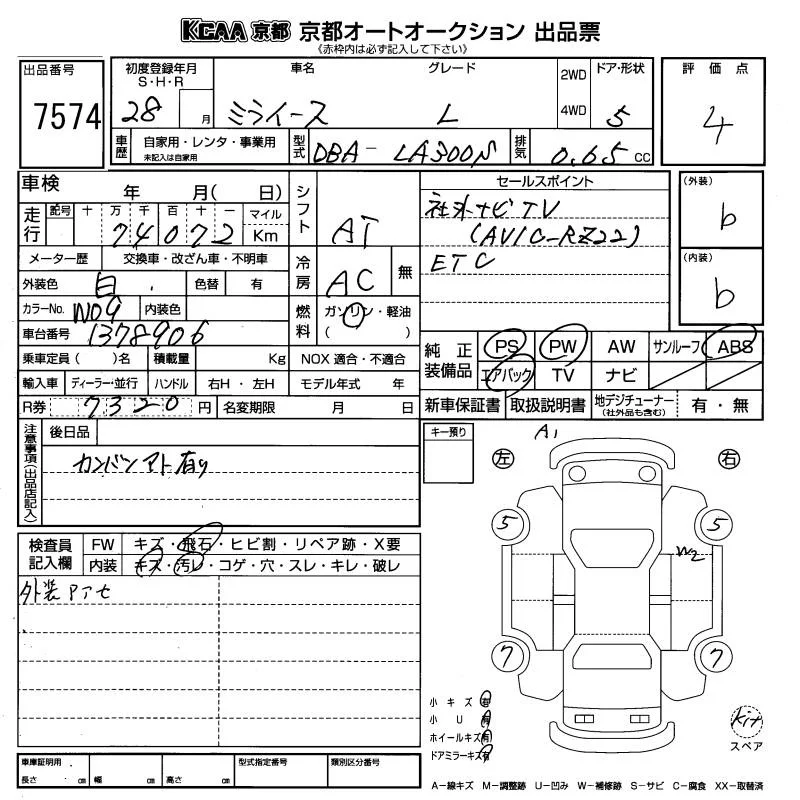 KCAA 京都 京都オートオークション 出品票
《赤枠内は必ず記入して下さい》
出品番号
7574
初度登録年月
S・H・R
28 月
車名
ミライース
グレード
L
2WD
4WD
ドア・形状
5
評価点
4
車歴
自家用・レンタ・事業用
未記入は自家用
型式
DBA-LA300S
排気
0.65 CC
車検 年 月( 日)
走行
記号 十 万 千 百 十 一 マイル
7 4 0 7 2 Km
メーター歴 交換車・改ざん車・不明車
外装色 白 色替 有
カラーNo. W09 内装色
車台番号 1378906
乗車定員( )名 積載量 Kg
輸入車 ディーラー・並行 ハンドル 右H・左H
R券 7320 円 名変期限 月 日
シフト AT
冷房 AC 無
燃料 ガソリン・軽油
( )
NOX 適合・不適合
モデル年式 年
セールスポイント
社外ナビTV
(AVIC-RZ22)
ETC
(外装)
b
(内装)
b
純正装備品
PS PW AW サンルーフ ABS
エアバック TV ナビ
新車保証書 取扱説明書 地デジチューナー
(社外品も含む)
有・無
注意事項(出品店記入)
後日品
カンバンアト有り
キー預り
A1
左
右
5
5
W2
7
7
検査員記入欄
FW キズ・飛石・ヒビ割・リペア跡・X要
内装 キズ・汚レ・コゲ・穴・スレ・キレ・破レ
外装アセ
小キズ 有
小U 有
ホイールキズ 有
ドアミラーキズ 有
Kit
スペア
車庫証明用
長さ cm 幅 cm 高さ cm
型式指定番号
類別区分番号
A−線キズ M−調整跡 U−凹み W−補修跡 S−サビ C−腐食 XX−取替済